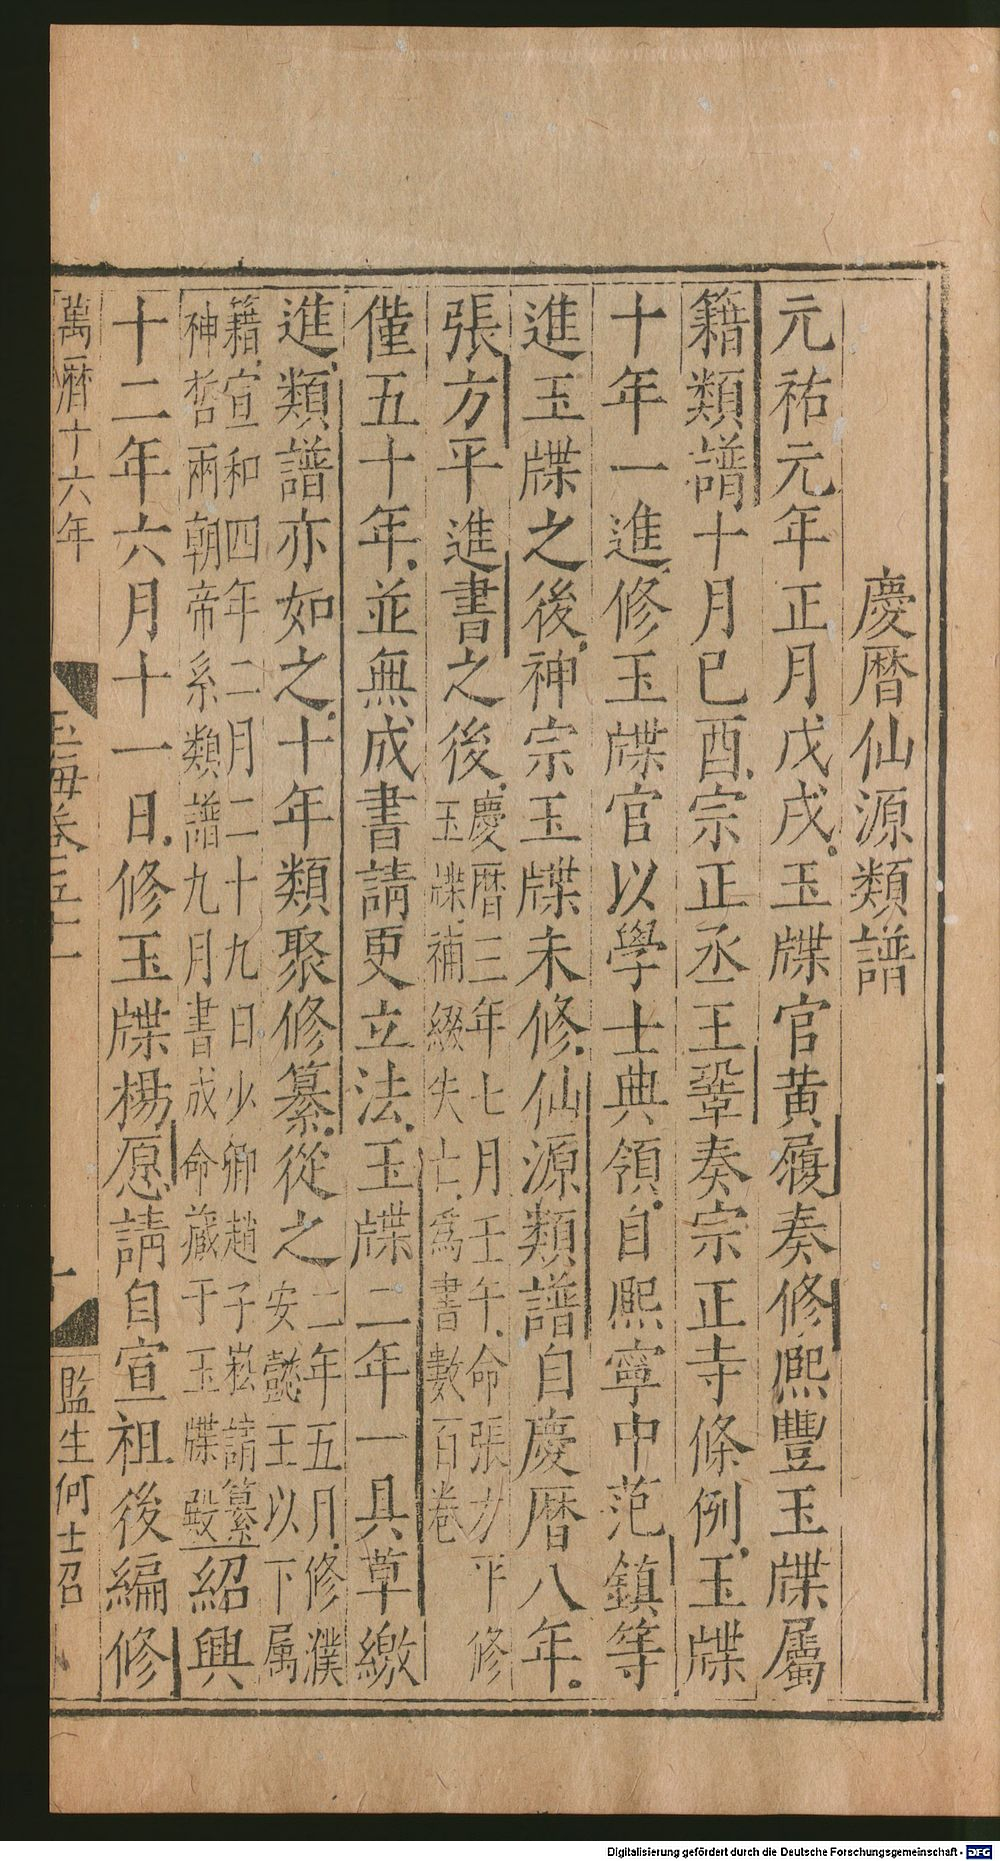 慶曆仙源類譜
元祐元年正月戊戌玉牒官黃履奏修熙豐玉牒屬
籍類譜十月己酉宗正丞王鞏奏宗正寺條例玉牒
十年一進修玉牒官以學士典領自熙寧中范鎮等
進玉牒之後神宗玉牒未修仙源類譜自慶曆八年
張方平進書之後慶曆三年七月壬午命張方平修
玉牒補綴失亡為書數百卷
僅五十年並無成書請更立法玉牒二年一具草繳
進類譜亦如之十年類聚修纂從之二年五月修濮
安懿王以下属
籍宣和四年二月二十九日少卿趙子崧請纂
神哲兩朝帝系類譜九月書成命藏于玉牒殿紹興
十二年六月十一日修玉牒楊愿請自宣祖後編修
萬曆十六年
玉海卷五十一
十
監生何士召
Digitalisierung gefördert durch die Deutsche Forschungsgemeinschaft - DFG